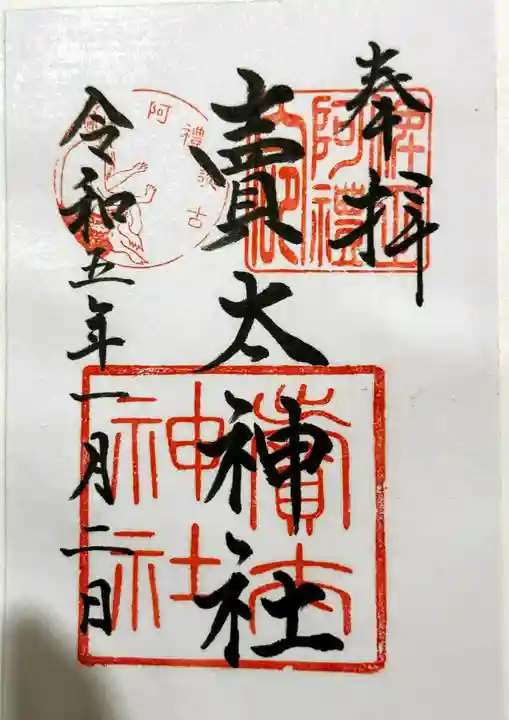 奉拝
賣太神社
令和五年一月二日
阿禮
阿禮
賣太神社